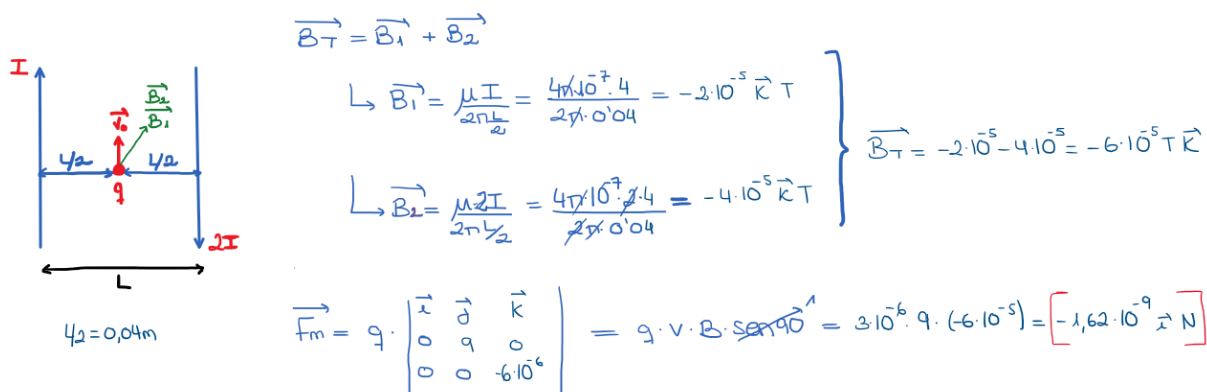 $\vec{B_T} = \vec{B_1} + \vec{B_2}$
I
$\vec{B_2}$
$\vec{B_1}$
$\vec{v_0}$
L/2
L/2
q
2I
L
L/2 = 0,04m
↳ $\vec{B_1} = \frac{\mu I}{2\pi \frac{L}{2}} = \frac{4\pi 10^{-7} \cdot 4}{2\pi \cdot 0'04} = -2 \cdot 10^{-5} \vec{k}$ T
↳ $\vec{B_2} = \frac{\mu 2I}{2\pi L/2} = \frac{4\pi \cdot 10^{-7} \cdot 2 \cdot 4}{2\pi \cdot 0'04} = -4 \cdot 10^{-5} \vec{k}$ T
$\vec{B_T} = -2 \cdot 10^{-5} - 4 \cdot 10^{-5} = -6 \cdot 10^{-5}$ T $\vec{k}$
$\vec{F_m} = q \cdot \begin{vmatrix} \vec{i} & \vec{j} & \vec{k} \\ 0 & 9 & 0 \\ 0 & 0 & -6 \cdot 10^{-6} \end{vmatrix} = q \cdot v \cdot B \cdot sen 90^{1} = 3 \cdot 10^{-6} \cdot 9 \cdot (-6 \cdot 10^{-5}) = [-1,62 \cdot 10^{-9} \vec{i}$ N]